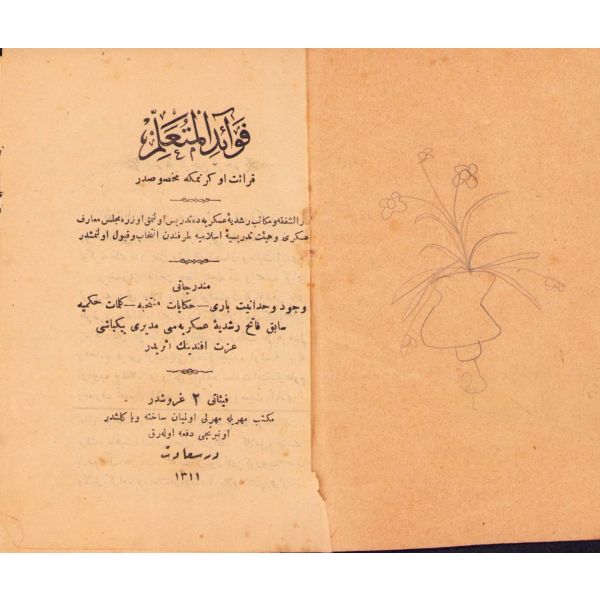 فوائد المتعلم
قرائت اوكرنمكه مخصوصدر
دار الشفقه و مكاتب رشديهٔ عسكريه ده تدريس اولنمق اوزره مجلس معارف
عسكرى و هيئت تدريسيهٔ اسلاميه طرفندن انتخاب و قبول اولنمشدر
مندرجاتى
وجود وحدانيت بارى — حكايات منتخبه — كلمات حكميه
سابق فاتح رشديهٔ عسكريه سى مديرى بيكباشى
عزت افندينك اثريدر
فيئاتى ٢ غروشدر
مكتب مهريله مهرلى اولميان ساخته ويا كلشدر
اونبرنجى دفعه اوله رق
درسعادت
١٣١١